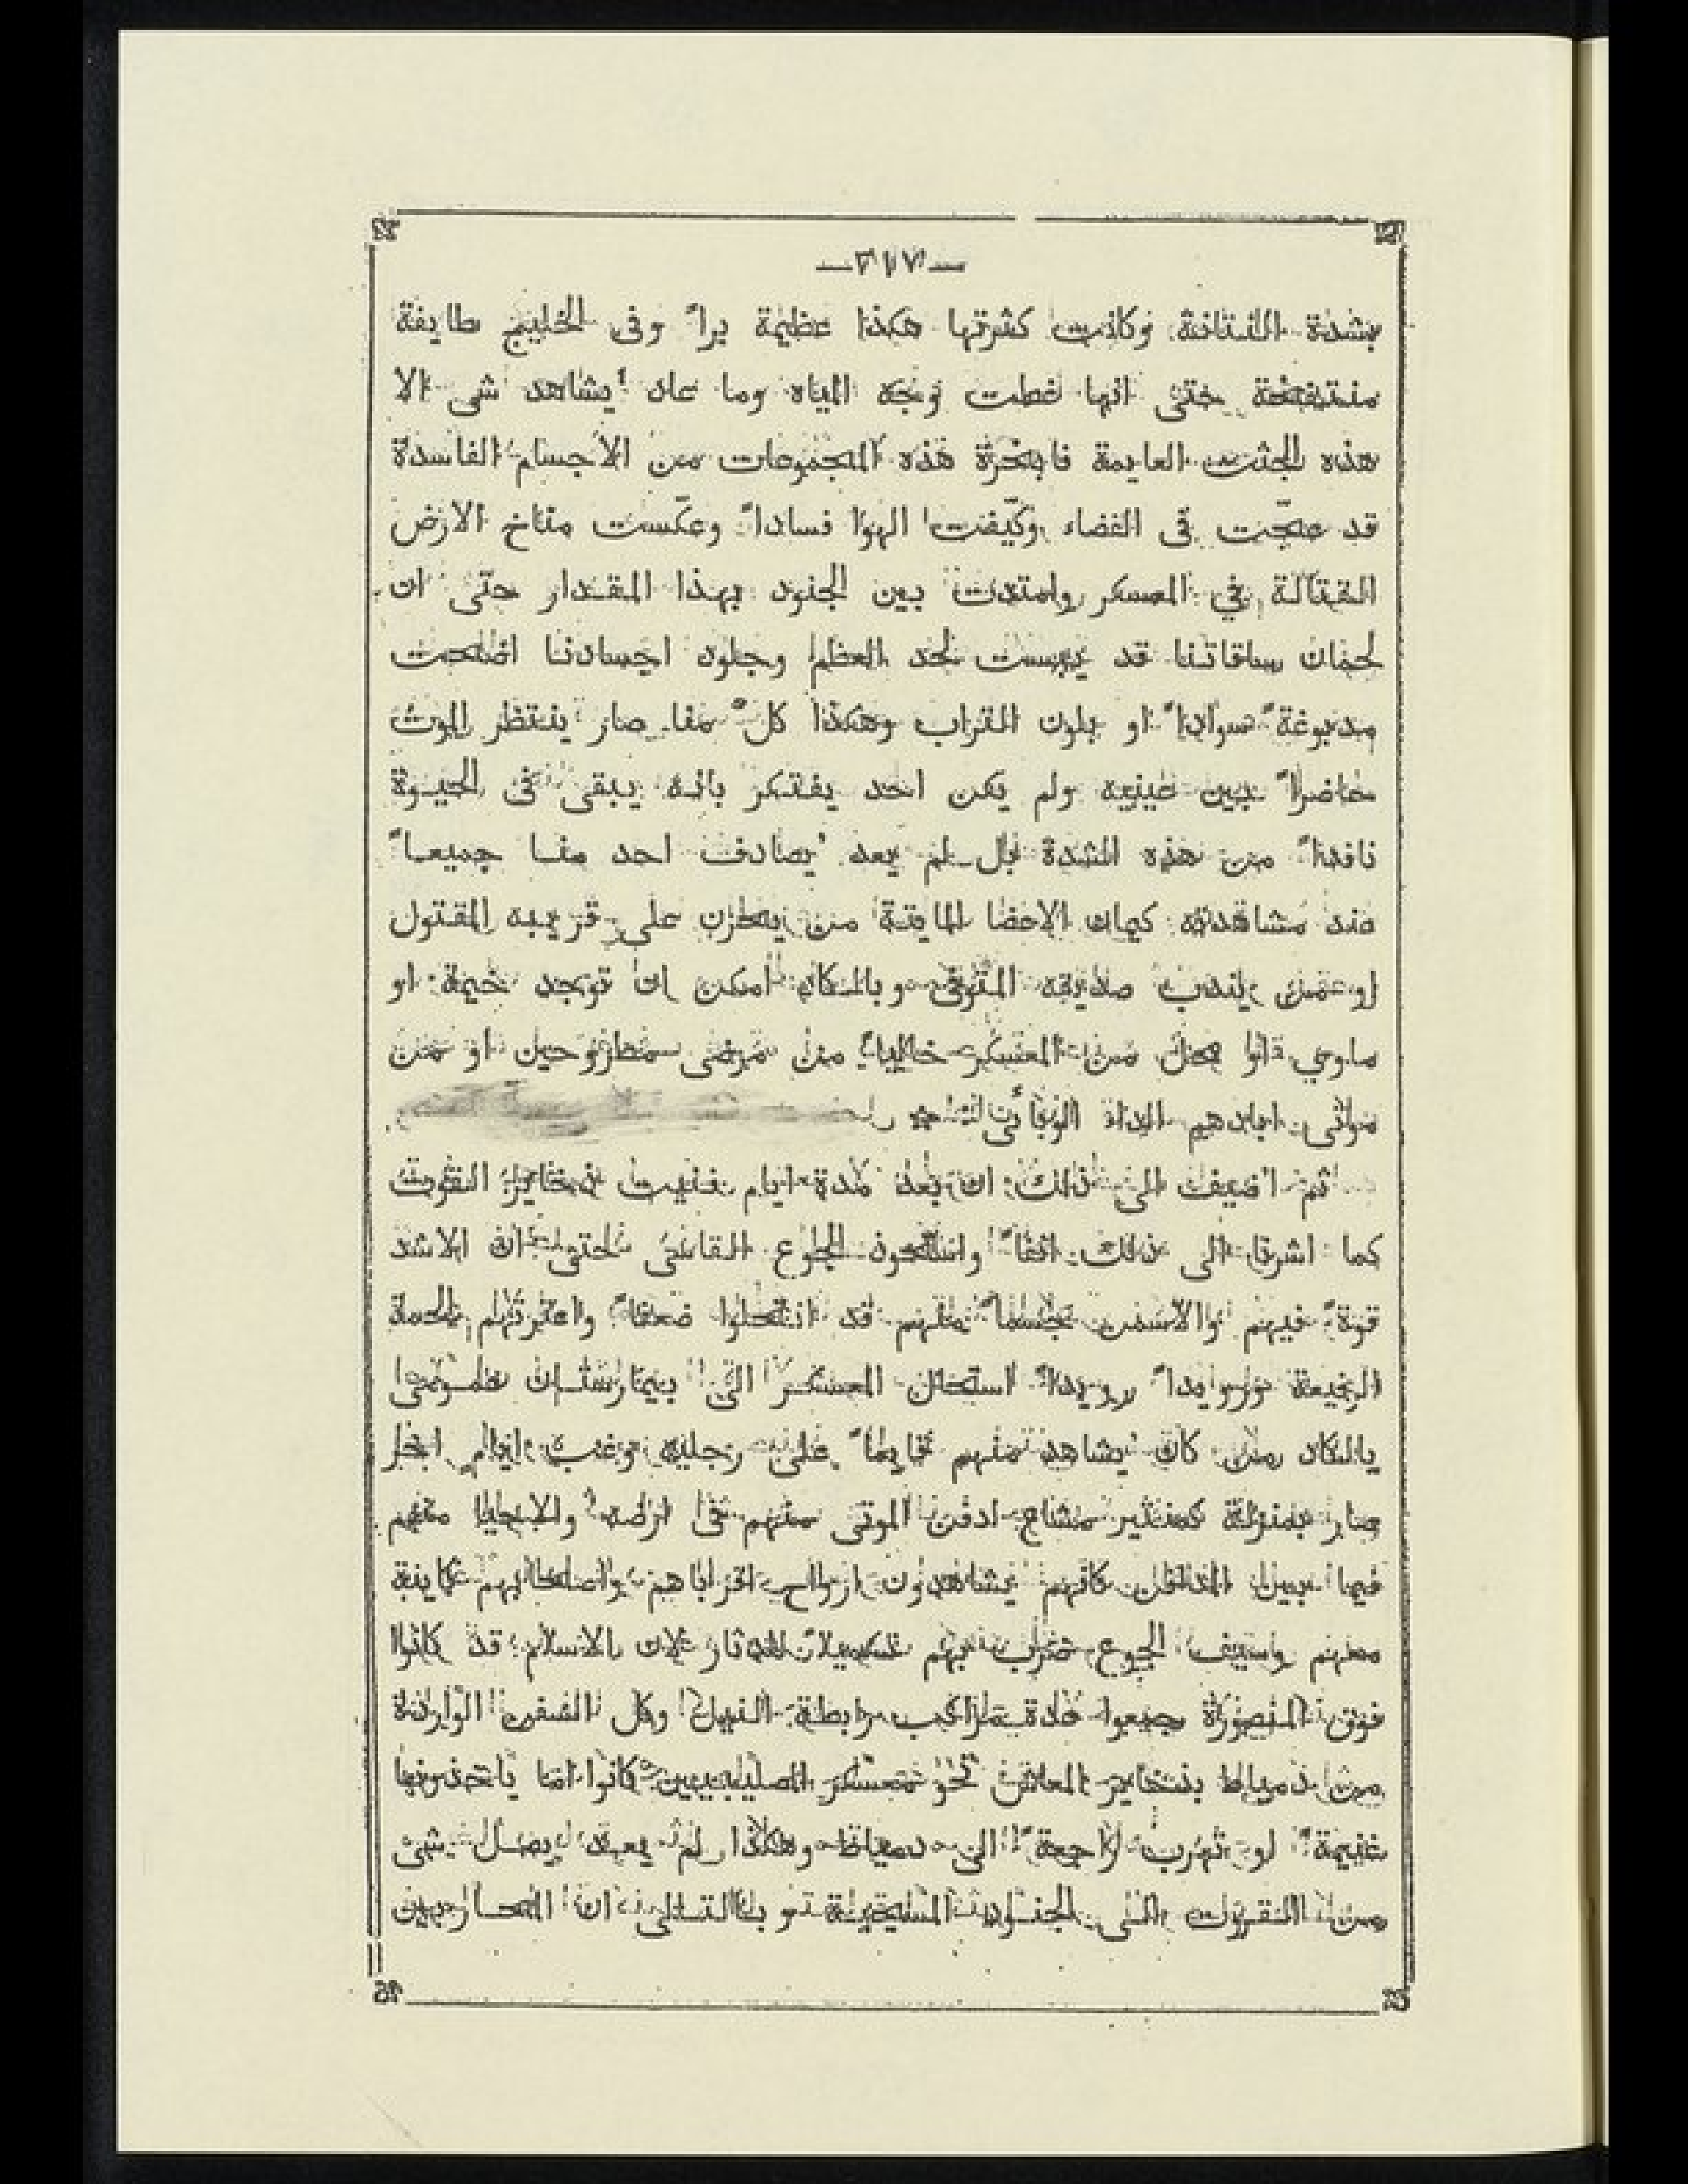 —٣١٧—
بشدة النتانة وكانت كثرتها هكذا عظيمة برا وفى الخليج طايفة
منتفخة حتى انها غطت وجه المياه وما عاد يشاهد شى الا
هذه الجثث العايمة فابخرة هذه المجموعات من الاجسام الفاسدة
قد عجّت فى الفضاء وكيّفت الهوا فسادا وعكست مناخ الارض
القتالة فى المعسكر وامتدت بين الجنود بهذا المقدار حتى ان
لحمان ساقاتنا قد يبست لحد العظم وجلود اجسادنا اضحت
مدبوغة سوادا او بلون التراب وهكذا كلّ منا صار ينتظر الموت
حاضرا بين عينيه ولم يكن احد يفتكر بانه يبقى فى الحيوة
نافدا من هذه الشدة بل لم يعد يصادف احد منا جميعا
عند مشاهدته كيمان الاعضا المايتة من يحزن على قريبه المقتول
او من يندب صديقه المتوفى وبالكاد امكن ان توجد خيمة او
ماوى او محل من المعسكر خاليا من مرضى مطروحين او من
موتى ابادهم الداء الوبائى
ثم اضيف الى ذلك ان بعد مدة ايام فنيت ذخاير القوت
كما اشرنا الى ذلك انفا واستحوذ الجوع القاسى حتى ان الاشد
قوة فيهم والاسمن جسما منهم قد انتحلوا ضعفا واعترتهم
رويدا رويدا استحال المعسكر الى بيمارستان
بالكاد من كان يشاهد منهم قايما على رجليه وغب ايام اخر
صار بمنزلة مشاع ادفن الموتى منهم فى ارضه والاحيا منهم
فيما بين كانهم يشاهدون ارواح اقرباهم واصحابهم غايبة
معهم وسيف الجوع بهم لان الاسلام قد كانوا
فوق المنصورة جمعوا عدة مراكب رابطة النيل وكل السفن الواردة
من دمياط بذخاير المعاش نحو معسكر الصليبيين كانوا اما ياخذونها
غنيمة او تهرب راجعة الى دمياط وهكذا لم يعد يصل شى
من القوت الى الجنود المسيحية وبالتالى ان المحاربين